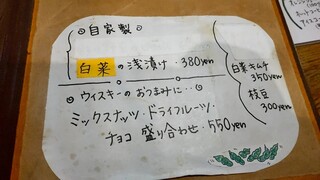 ◎自家製
白菜の浅漬け・380yen
◎ウィスキーのおつまみに・・
ミックスナッツ・ドライフルーツ・
チョコ 盛り合わせ・550yen
白菜キムチ
350yen
枝豆
300yen